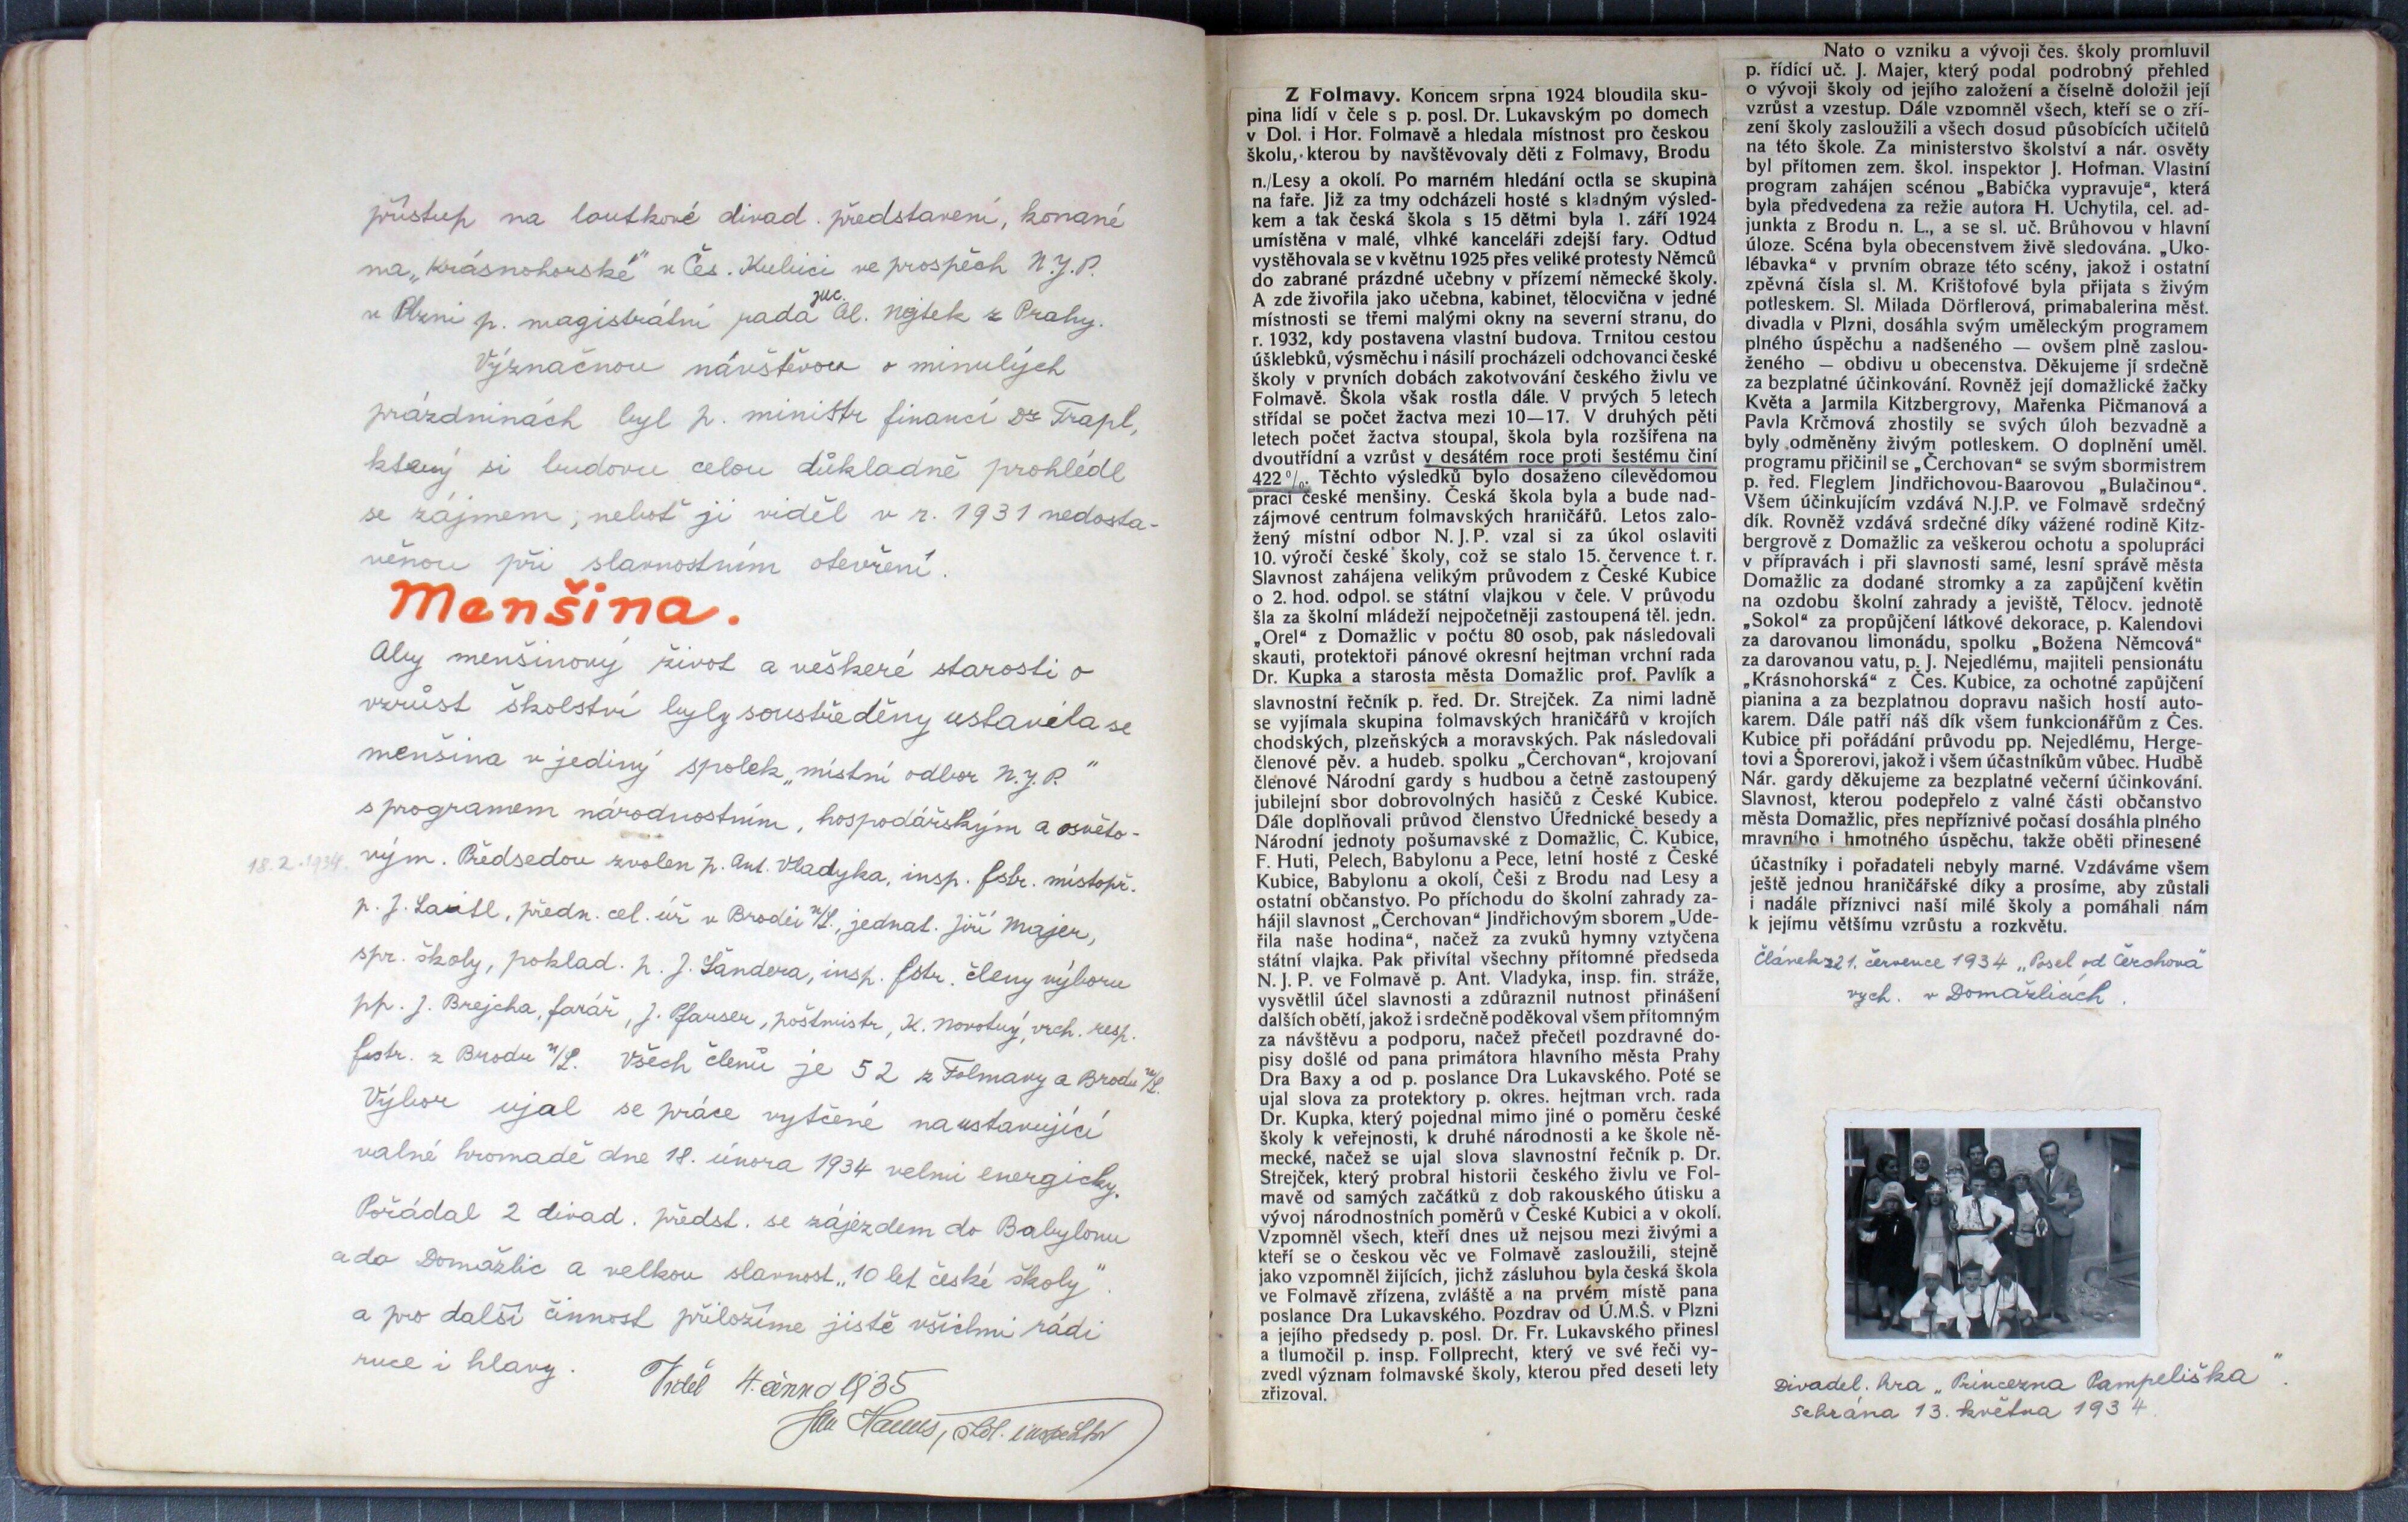 přístup na loutkové divad. představení, konané
na „Krásnohorské" v Čes. Kubici ve prospěch N.J.P.
v Plzni p. magistrátní rada JUC. Al. Nojtek z Prahy.
Význačnou návštěvou o minulých
prázdninách byl p. ministr financí Dr Trapl,
který si budovu celou důkladně prohlédl
se zájmem, neboť ji viděl v r. 1931 nedosta-
věnou při slavnostním otevření.
Menšina.
Aby menšinový život a veškeré starosti o
vzrůst školství byly soustředěny ustavila se
menšina v jediný spolek „místní odbor N.J.P."
s programem národnostním, hospodářským a osvěto-
18.2.1934. vým. Předsedou zvolen p. Ant. Vladyka, insp. f.str. místopř.
p. J. Lautl, předn. cel. úř v Brodě n/L., jednat. Jiří Majer,
spr. školy, poklad. p. J. Šandera, insp. f.str. členy výboru
pp. J. Brejcha, farář, J. Pfauser, poštmistr, K. Novotný, vrch. resp.
f.str. z Brodu n/L. Všech členů je 52 z Folmavy a Brodu n/L.
Výbor ujal se práce vytčené na ustavující
valné hromadě dne 18. února 1934 velmi energicky.
Pořádal 2 divad. předst. se zájezdem do Babylonu
a do Domažlic a velkou slavnost „10 let české školy".
a pro další činnost přiložíme jistě všichni rádi
ruce i hlavy.
Viděl 4. 1935
škol. inspektor
Z Folmavy. Koncem srpna 1924 bloudila sku-
pina lidí v čele s p. posl. Dr. Lukavským po domech
v Dol. i Hor. Folmavě a hledala místnost pro českou
školu, kterou by navštěvovaly děti z Folmavy, Brodu
n./Lesy a okolí. Po marném hledání octla se skupina
na faře. Již za tmy odcházeli hosté s kladným výsled-
kem a tak česká škola s 15 dětmi byla 1. září 1924
umístěna v malé, vlhké kanceláři zdejší fary. Odtud
vystěhovala se v květnu 1925 přes veliké protesty Němců
do zabrané prázdné učebny v přízemí německé školy.
A zde živořila jako učebna, kabinet, tělocvična v jedné
místnosti se třemi malými okny na severní stranu, do
r. 1932, kdy postavena vlastní budova. Trnitou cestou
úšklebků, výsměchu i násilí procházeli odchovanci české
školy v prvních dobách zakotvování českého živlu ve
Folmavě. Škola však rostla dále. V prvých 5 letech
střídal se počet žactva mezi 10—17. V druhých pěti
letech počet žactva stoupal, škola byla rozšířena na
dvoutřídní a vzrůst v desátém roce proti šestému činí
422%. Těchto výsledků bylo dosaženo cílevědomou
prací české menšiny. Česká škola byla a bude nad-
zájmové centrum folmavských hraničářů. Letos zalo-
žený místní odbor N. J. P. vzal si za úkol oslaviti
10. výročí české školy, což se stalo 15. července t. r.
Slavnost zahájena velikým průvodem z České Kubice
o 2. hod. odpol. se státní vlajkou v čele. V průvodu
šla za školní mládeží nejpočetněji zastoupená těl. jedn.
„Orel" z Domažlic v počtu 80 osob, pak následovali
skauti, protektoři pánové okresní hejtman vrchní rada
Dr. Kupka a starosta města Domažlic prof. Pavlík a
slavnostní řečník p. řed. Dr. Strejček. Za nimi ladně
se vyjímala skupina folmavských hraničářů v krojích
chodských, plzeňských a moravských. Pak následovali
členové pěv. a hudeb. spolku „Čerchovan", krojovaní
členové Národní gardy s hudbou a četně zastoupený
jubilejní sbor dobrovolných hasičů z České Kubice.
Dále doplňovali průvod členstvo Úřednické besedy a
Národní jednoty pošumavské z Domažlic, Č. Kubice,
F. Huti, Pelech, Babylonu a Pece, letní hosté z České
Kubice, Babylonu a okolí, Češi z Brodu nad Lesy a
ostatní občanstvo. Po příchodu do školní zahrady za-
hájil slavnost „Čerchovan" Jindřichovým sborem „Ude-
řila naše hodina", načež za zvuků hymny vztyčena
státní vlajka. Pak přivítal všechny přítomné předseda
N. J. P. ve Folmavě p. Ant. Vladyka, insp. fin. stráže,
vysvětlil účel slavnosti a zdůraznil nutnost přinášení
dalších obětí, jakož i srdečně poděkoval všem přítomným
za návštěvu a podporu, načež přečetl pozdravné do-
pisy došlé od pana primátora hlavního města Prahy
Dra Baxy a od p. poslance Dra Lukavského. Poté se
ujal slova za protektory p. okres. hejtman vrch. rada
Dr. Kupka, který pojednal mimo jiné o poměru české
školy k veřejnosti, k druhé národnosti a ke škole ně-
mecké, načež se ujal slova slavnostní řečník p. Dr.
Strejček, který probral historii českého živlu ve Fol-
mavě od samých začátků z dob rakouského útisku a
vývoj národnostních poměrů v České Kubici a v okolí.
Vzpomněl všech, kteří dnes už nejsou mezi živými a
kteří se o českou věc ve Folmavě zasloužili, stejně
jako vzpomněl žijících, jichž zásluhou byla česká škola
ve Folmavě zřízena, zvláště a na prvém místě pana
poslance Dra Lukavského. Pozdrav od Ú.M.Š. v Plzni
a jejího předsedy p. posl. Dr. Fr. Lukavského přinesl
a tlumočil p. insp. Follprecht, který ve své řeči vy-
zvedl význam folmavské školy, kterou před deseti lety
zřizoval.
Nato o vzniku a vývoji čes. školy promluvil
p. řídící uč. J. Majer, který podal podrobný přehled
o vývoji školy od jejího založení a číselně doložil její
vzrůst a vzestup. Dále vzpomněl všech, kteří se o zří-
zení školy zasloužili a všech dosud působících učitelů
na této škole. Za ministerstvo školství a nár. osvěty
byl přítomen zem. škol. inspektor J. Hofman. Vlastní
program zahájen scénou „Babička vypravuje", která
byla předvedena za režie autora H. Uchytila, cel. ad-
junkta z Brodu n. L., a se sl. uč. Brůhovou v hlavní
úloze. Scéna byla obecenstvem živě sledována. „Uko-
lébavka" v prvním obraze této scény, jakož i ostatní
zpěvná čísla sl. M. Krištofové byla přijata s živým
potleskem. Sl. Milada Dörflerová, primabalerina měst.
divadla v Plzni, dosáhla svým uměleckým programem
plného úspěchu a nadšeného — ovšem plně zaslou-
ženého — obdivu u obecenstva. Děkujeme jí srdečně
za bezplatné účinkování. Rovněž její domažlické žačky
Květa a Jarmila Kitzbergrovy, Mařenka Pičmanová a
Pavla Krčmová zhostily se svých úloh bezvadně a
byly odměněny živým potleskem. O doplnění uměl.
programu přičinil se „Čerchovan" se svým sbormistrem
p. řed. Fleglem Jindřichovou-Baarovou „Bulačinou".
Všem účinkujícím vzdává N.J.P. ve Folmavě srdečný
dík. Rovněž vzdává srdečné díky vážené rodině Kitz-
bergrově z Domažlic za veškerou ochotu a spolupráci
v přípravách i při slavnosti samé, lesní správě města
Domažlic za dodané stromky a za zapůjčení květin
na ozdobu školní zahrady a jeviště, Tělocv. jednotě
„Sokol" za propůjčení látkové dekorace, p. Kalendovi
za darovanou limonádu, spolku „Božena Němcová"
za darovanou vatu, p. J. Nejedlému, majiteli pensionátu
„Krásnohorská" z Čes. Kubice, za ochotné zapůjčení
pianina a za bezplatnou dopravu našich hostí auto-
karem. Dále patří náš dík všem funkcionářům z Čes.
Kubice při pořádání průvodu pp. Nejedlému, Herge-
tovi a Šporerovi, jakož i všem účastníkům vůbec. Hudbě
Nár. gardy děkujeme za bezplatné večerní účinkování.
Slavnost, kterou podepřelo z valné části občanstvo
města Domažlic, přes nepříznivé počasí dosáhla plného
mravního i hmotného úspěchu, takže oběti přinesené
účastníky i pořadateli nebyly marné. Vzdáváme všem
ještě jednou hraničářské díky a prosíme, aby zůstali
i nadále příznivci naší milé školy a pomáhali nám
k jejímu většímu vzrůstu a rozkvětu.
Článek z 21. července 1934 „Posel od Čerchova"
vych. v Domažlicích.
Divadel. hra „Princezna Pampeliška".
Sehrána 13. května 1934.